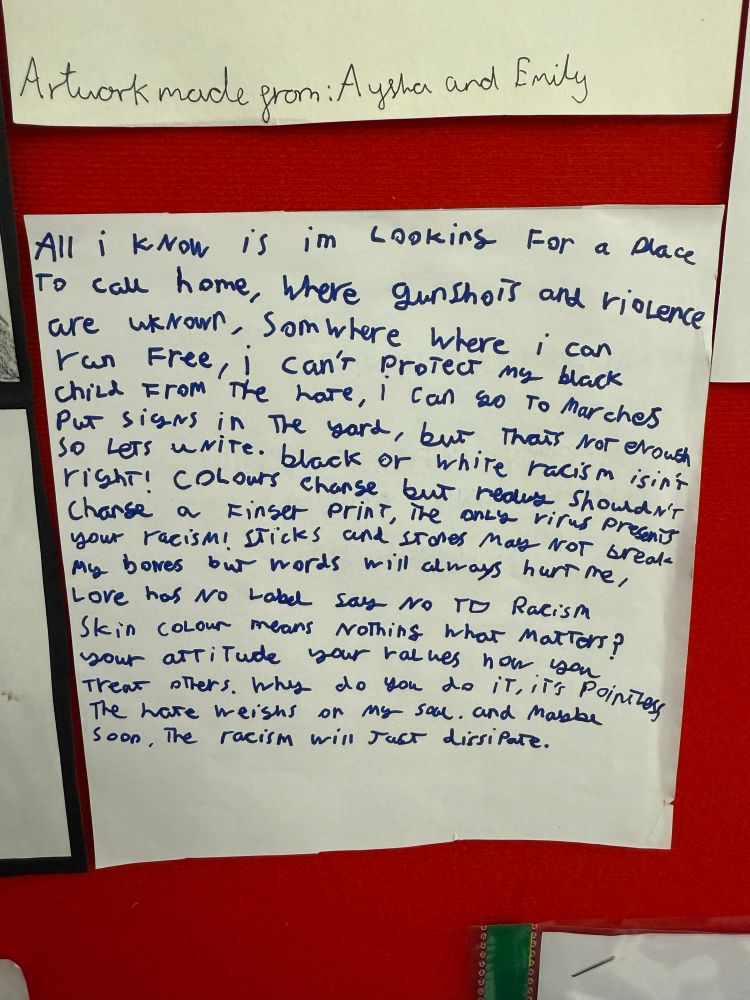 Artwork made from: Aysha and Emily
All i know is im Looking For a place
To call home, where gunshots and violence
are uknown, Somwhere where i can
run Free, i can't protect my black
child From The hate, i can go To Marches
Put signs in The yard, but Thats Not enough
So Lets unite. black or white racism isin't
right! Colours change but really shouldn't
Change a Finger Print, The only virus presents
your racism! Sticks and stones May Not break
My bones but words will always hurt me,
Love has No Label say No To Racism
Skin colour means Nothing what Matters?
your attitude your values how you
Treat others. Why do you do it, it's Pointless
The hate weighs on My soul. and Maybe
Soon, The racism will Just dissipate.